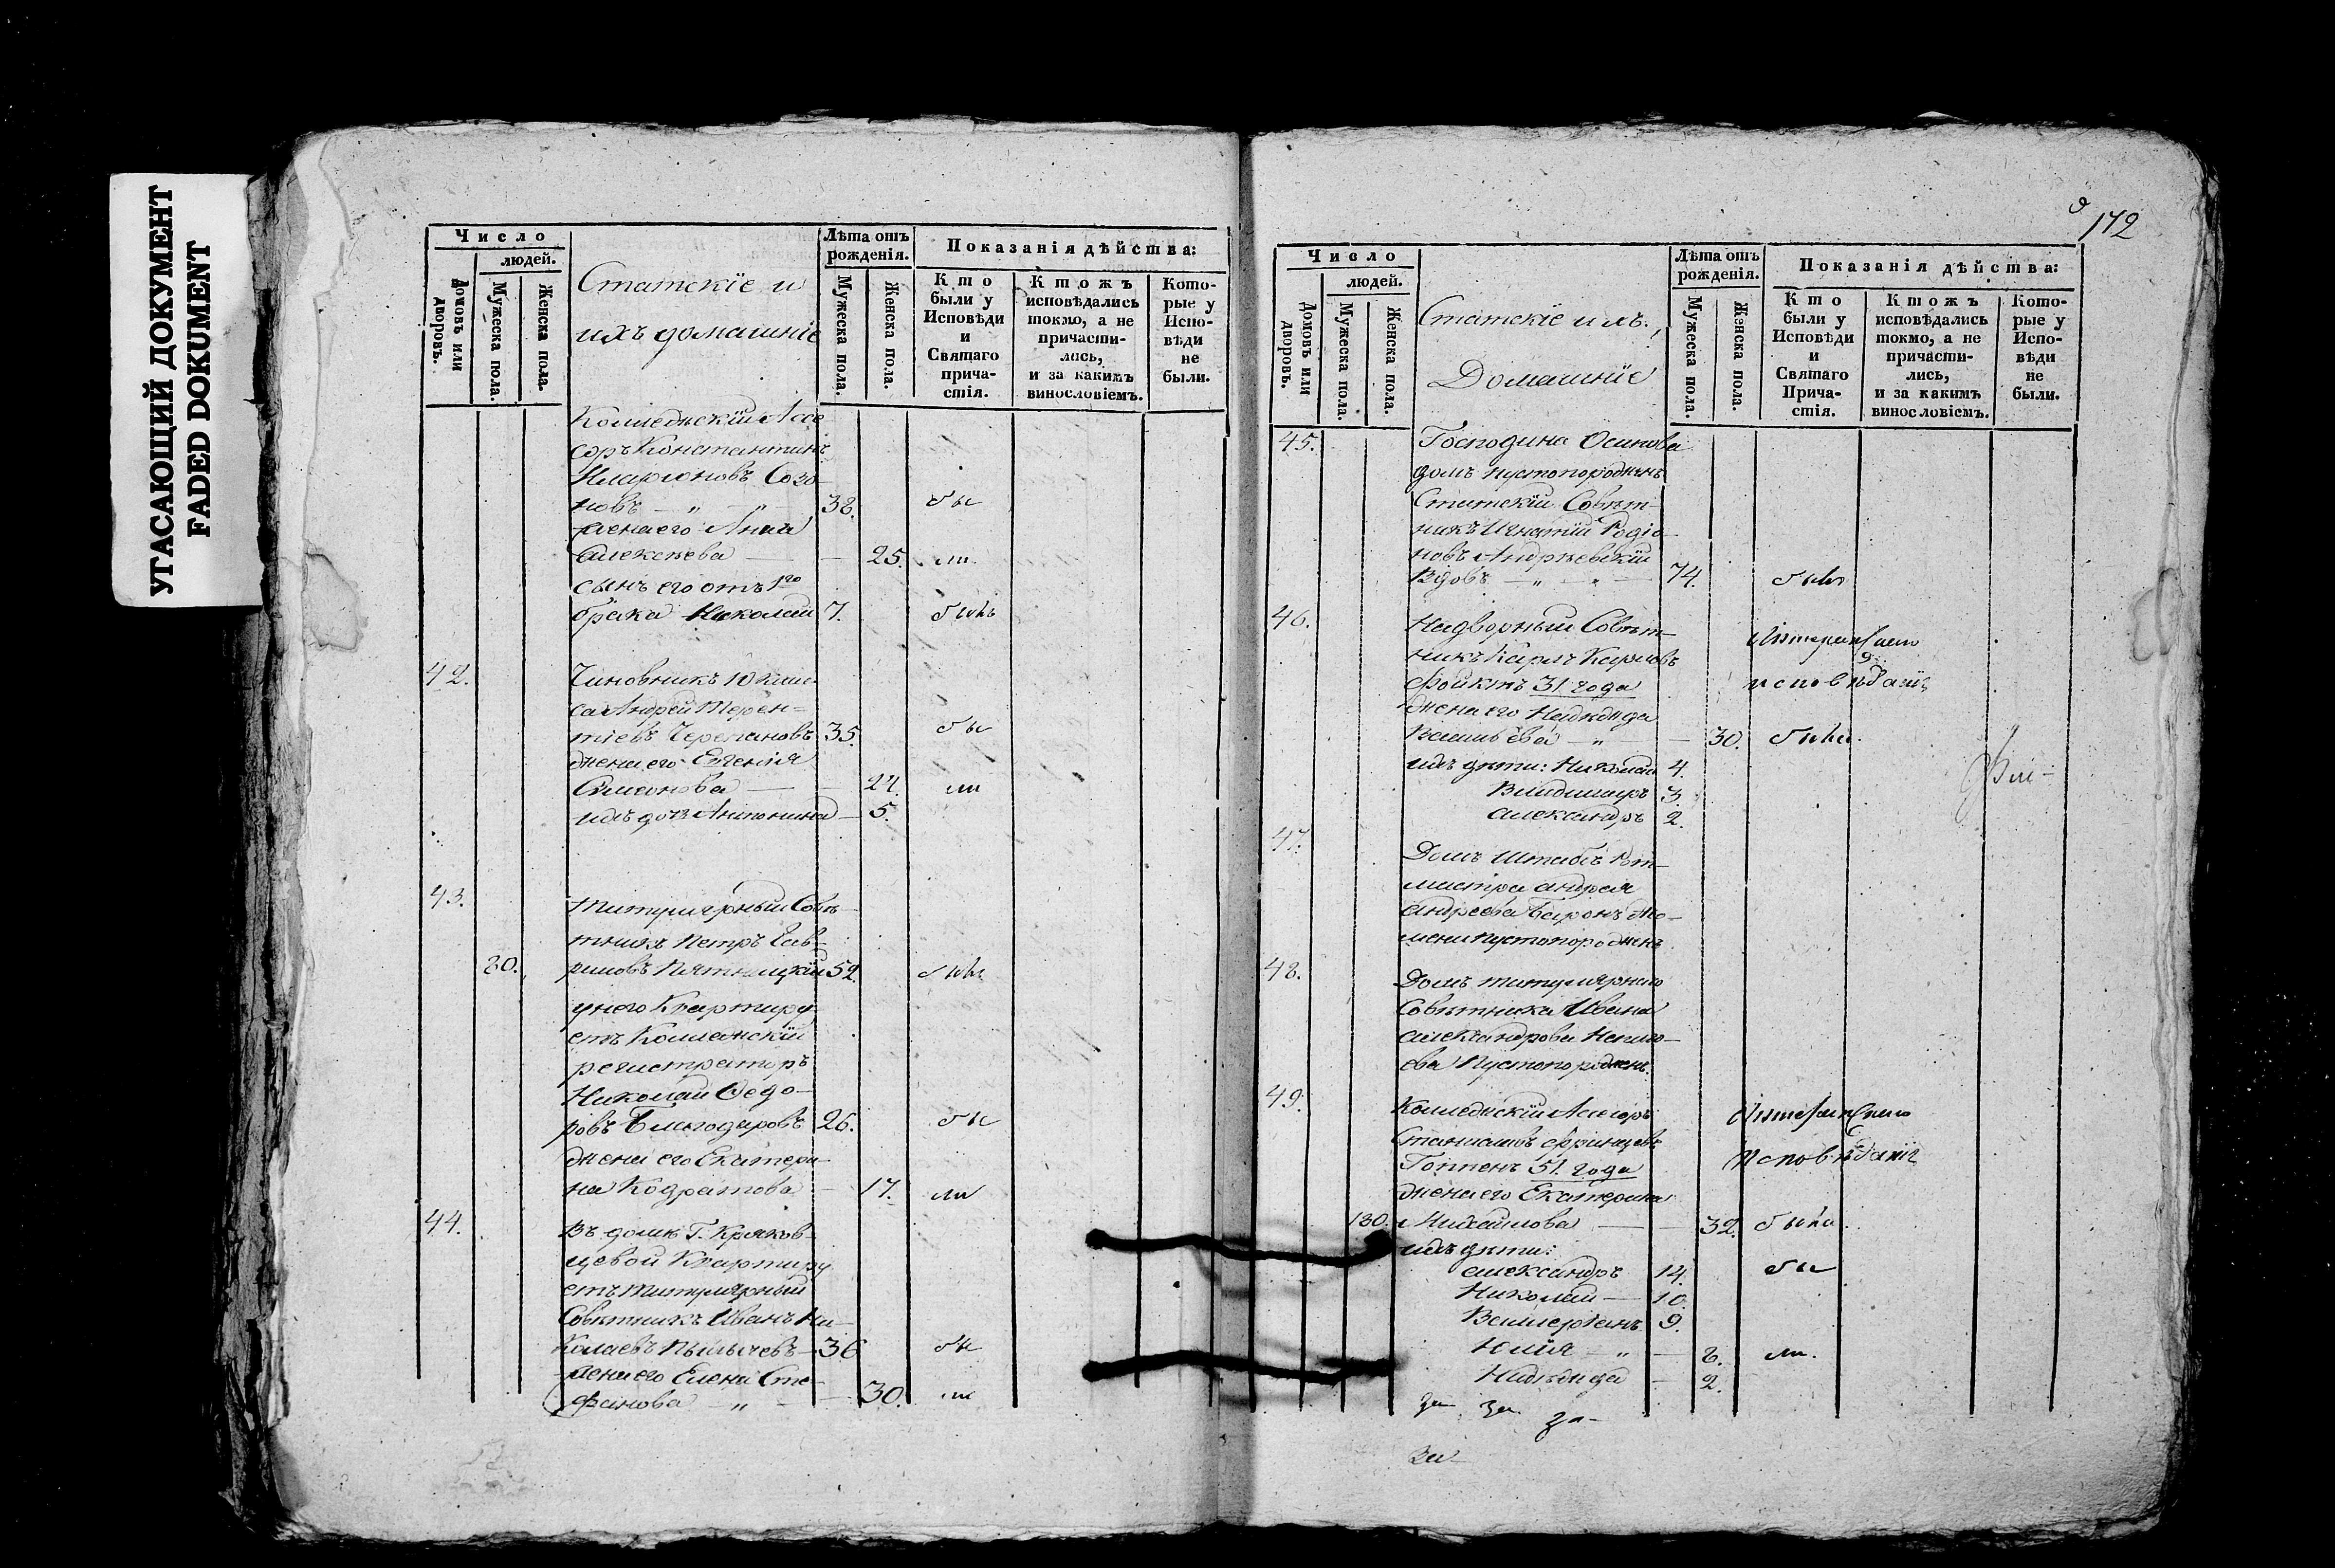 УГАСАЮЩИЙ ДОКУМЕНТ
FADED DOKUMENT
Число
людей.
Домовъ или дворовъ.
Мужеска пола.
Женска пола.
Статскіе и
ихъ домашніе
Лѣта отъ рожденія.
Мужеска пола.
Женска пола.
Показанія дѣйства:
Кто были у Исповѣди и Святаго причастія.
Ктожъ исповѣдались токмо, а не причастились, и за какимъ винословіемъ.
Которые у Исповѣди не были.
Коллежскій Ассе
соръ Константинъ
Иларіоновъ Созо
новъ — „ — „ — 38. бы
жена его Анна
Алексѣева — — 25. ли
сынъ его отъ 1го
брака Николай 7. былъ
42. Чиновникъ 10 клас
са Андрей Терен=
тіевъ Черепановъ 35. бы
жена его Евгенія
Симеонова — — 24. ли
ихъ дочь Антонина — 5.
43. Титулярный Совѣ
тникъ Петръ Гав=
80. риловъ Пятницкій 52. былъ
у него Квартиру
етъ Коллежскій
регистраторъ
Николай Ѳедо—
ровъ Благодаровъ 26. бы
жена его Екатери
на Кодратова — 17. ли
44. Въ домѣ Г. Кряков
цевой Квартиру
етъ титулярный
Совѣтникъ Иванъ Ни
колаевъ — 36 бы
жена его Елена Сте
фанова — „ — 30. ли
172
Число
людей.
Домовъ или дворовъ.
Мужеска пола.
Женска пола.
Статскіе ихъ.
Домашніе
Лѣта отъ рожденія.
Мужеска пола.
Женска пола.
Показанія дѣйства:
Кто были у Исповѣди и Святаго Причастія.
Ктожъ исповѣдались токмо, а не причастились, и за какимъ винословіемъ.
Которые у Исповѣди не были.
45. Господина Осипова
домъ пустопорожнѣнъ
Статскій Совѣт—
никъ Игнатій Родіо
новъ Андрѣевскій
Вдовъ — „ — „ — 74. былъ
46. Надворный Совѣт— Лютеранскаго
никъ Карлъ Карловъ
Фойктъ 31 года исповѣданія
жена его Надежда
Васильева — „ — 30. была.
ихъ дѣти: Николай 4.
Владимиръ 3.
Александръ 2.
47. Домъ Штабъ Рот—
мистра Андрея
Андреева Баронъ Ме—
лени пустопорожненъ
48. Домъ титулярнаго
Совѣтника Ивана
Александрова Неплю—
ева Пустопорожненъ
49. Коллежскій Асесоръ Лютеранскаго
Станиславъ Францовъ исповѣданія
Гоппенъ 51. года
жена его Екатерина
130. Михайлова — — 32. была.
ихъ дѣти:
Александръ 14. бы
Николай — 10.
Валлеріанъ 9.
Юлія — „ — 8. ли.
Надежда — 2.
за за за
за